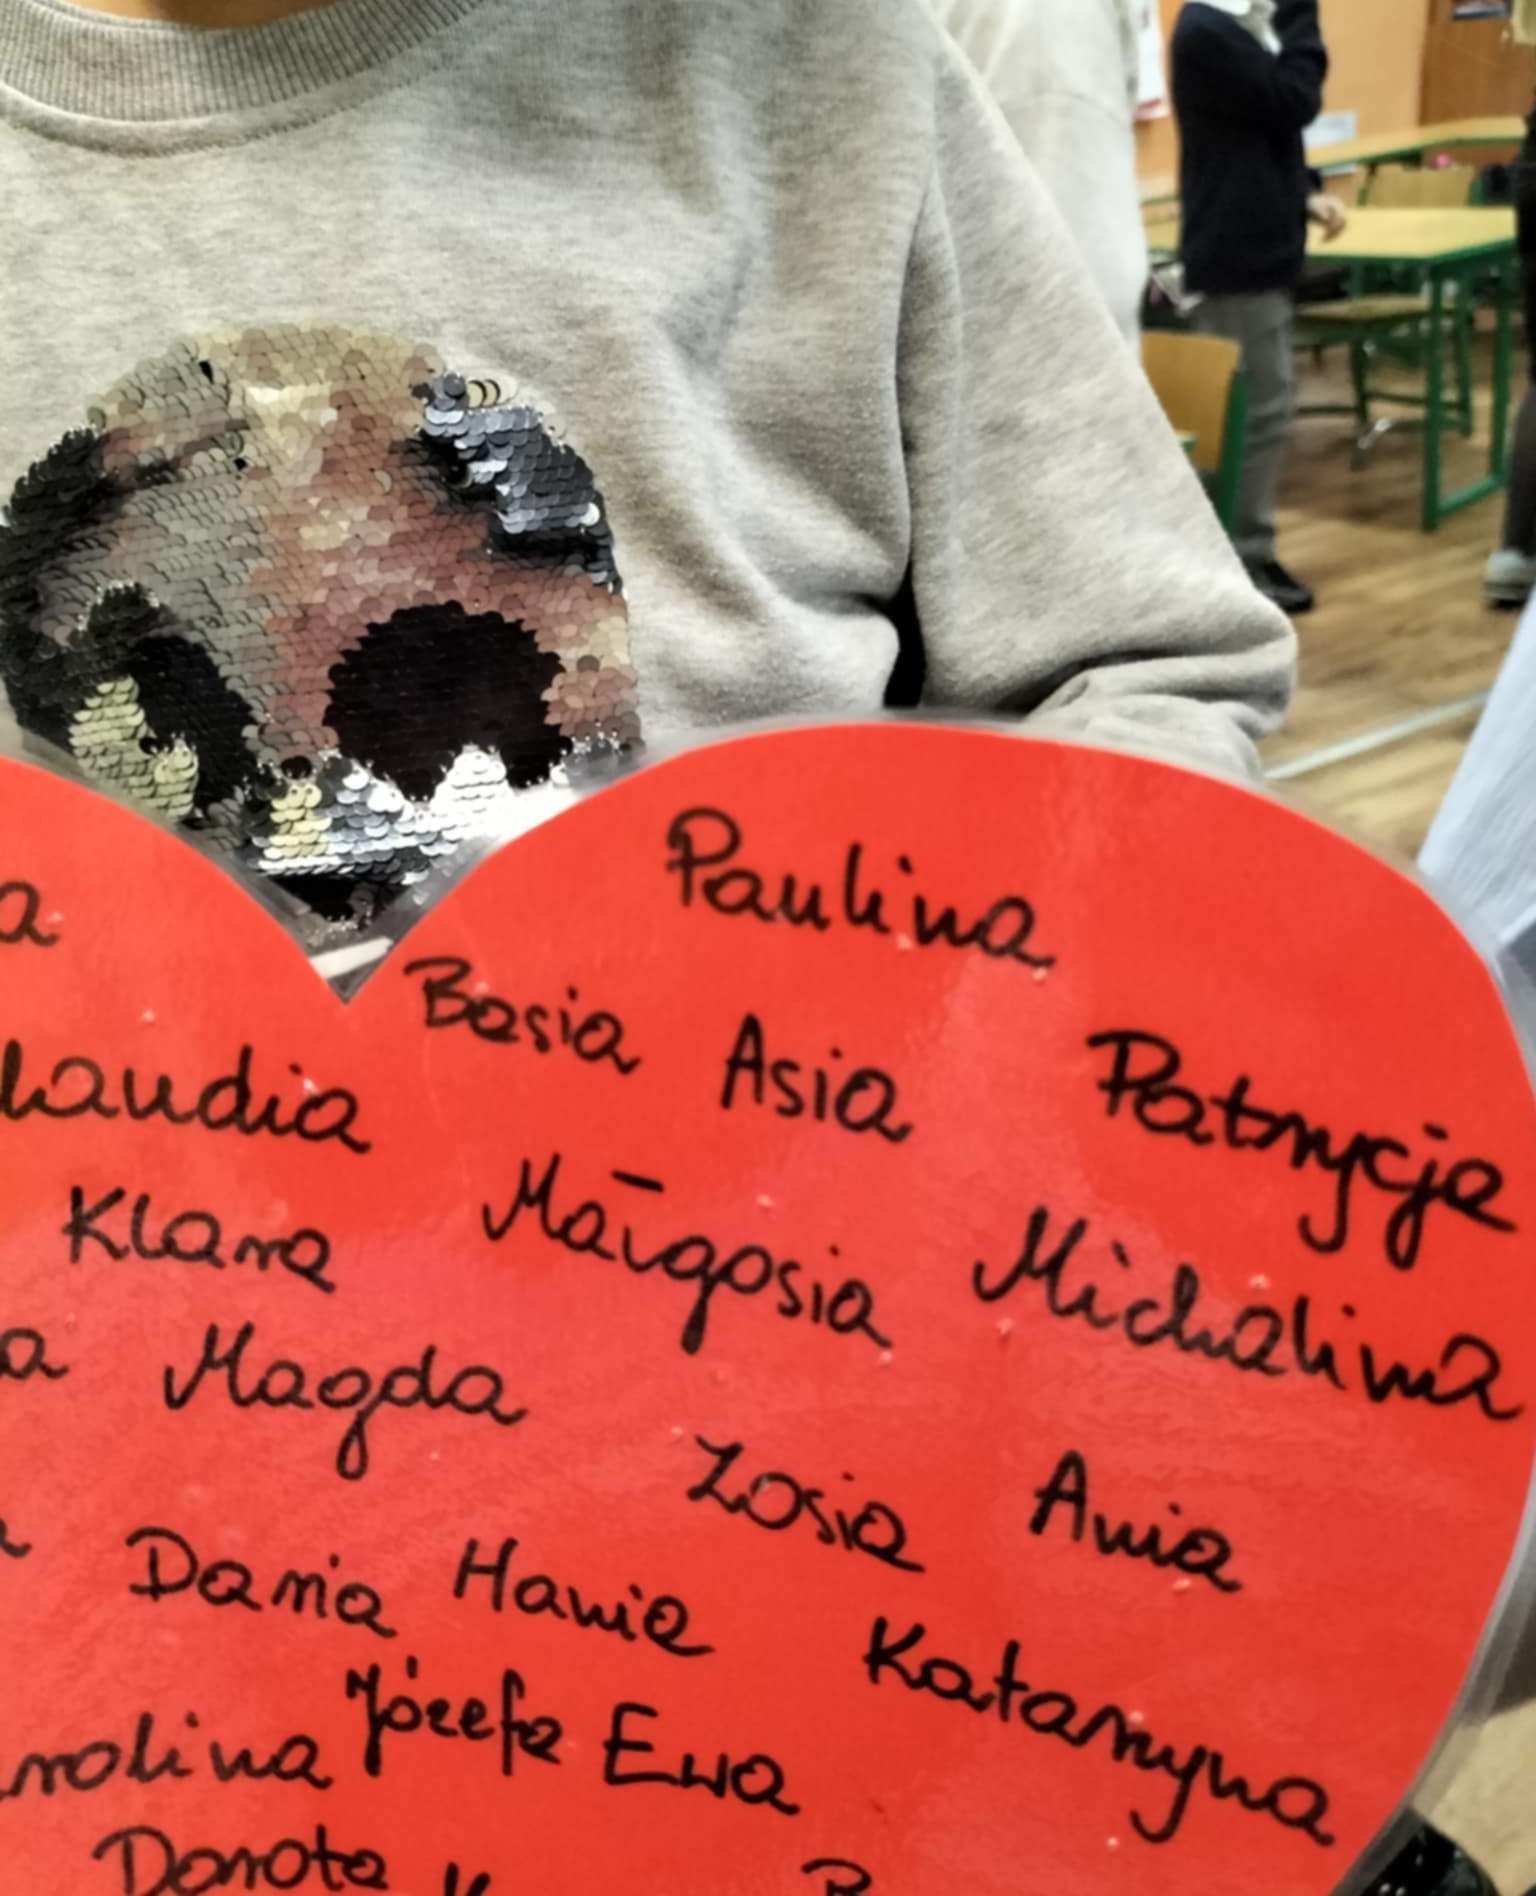 Paulina
Basia Asia Patrycja
laudia
Klara Małgosia Michalina
a Magda
Zosia Ania
Daria Hania Katarzyna
Józefa
rolina Ewa
Dorota